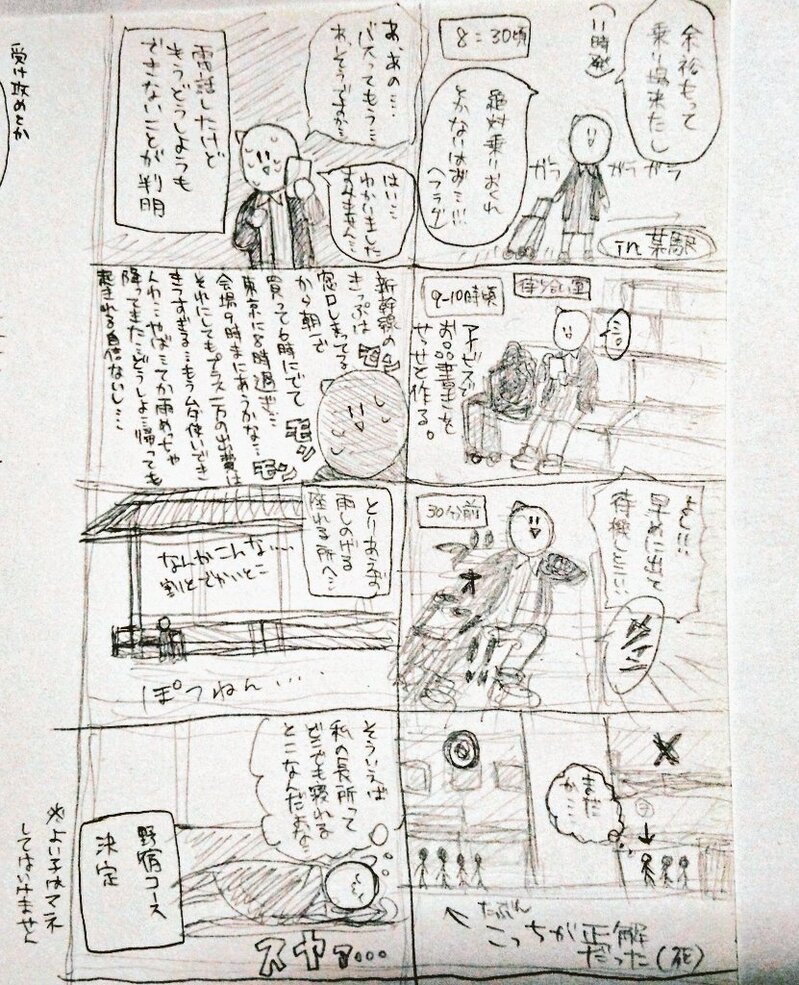 余裕もって
乗り場来たし
8:30頃
絶対乗りおくれ
とかないはず…!!!
(フラグ)
ガラ
ガラ
ガラ
in 某駅
待合室
9-10時頃
お品書きを
せっせと作る。
よし!!!
早めに出て
待機しとこ!!!
30分前
まだ
か…
たぶん
こっちが正解
だった(死)
あ、あの…
バスってもう…
はい…
わかりました
すみません…
電話したけど
もうどうしようも
できないことが判明
新幹線の
きっぷは
窓口しまってる
から朝一で
買って6時にでて
東京に8時過ぎ…
会場9時まにあうかな…
それにしてもプラス一万の出費は
きつすぎる…もう
降ってきた…どうしよ…帰っても
起きれる自信ないし…
モン
モン
モン
とりあえず
雨しのげる
座れる所へ…
なんかこんな…
割とでかいとこ
ぽつねん……
そういえば
私の長所って
どこでも寝れる
とこなんだよな…
野宿コース
決定
スヤァ…
※よい子はマネ
してはいけません
受け攻めとか